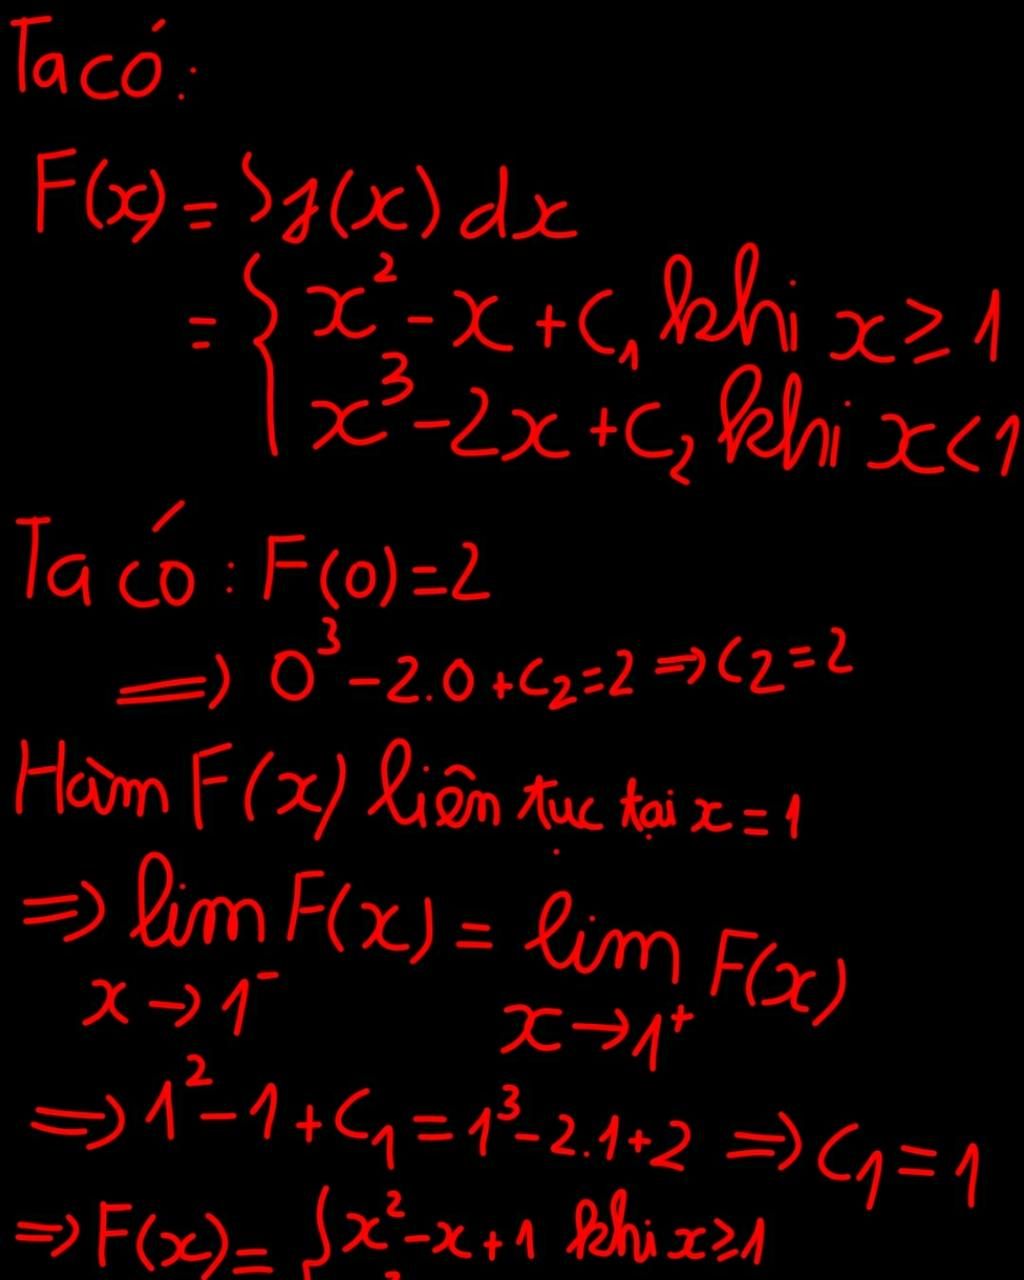 Ta có:
F(x) = ∫f(x) dx
= { x² - x + C₁ khi x ≥ 1
x³ - 2x + C₂ khi x < 1
Ta có: F(0) = 2
⟹ 0³ - 2.0 + C₂ = 2 ⟹ C₂ = 2
Hàm F(x) liên tục tại x = 1
⟹ lim F(x) = lim F(x)
x → 1⁻ x → 1⁺
⟹ 1² - 1 + C₁ = 1³ - 2.1 + 2 ⟹ C₁ = 1
⟹ F(x) = { x² - x + 1 khi x ≥ 1